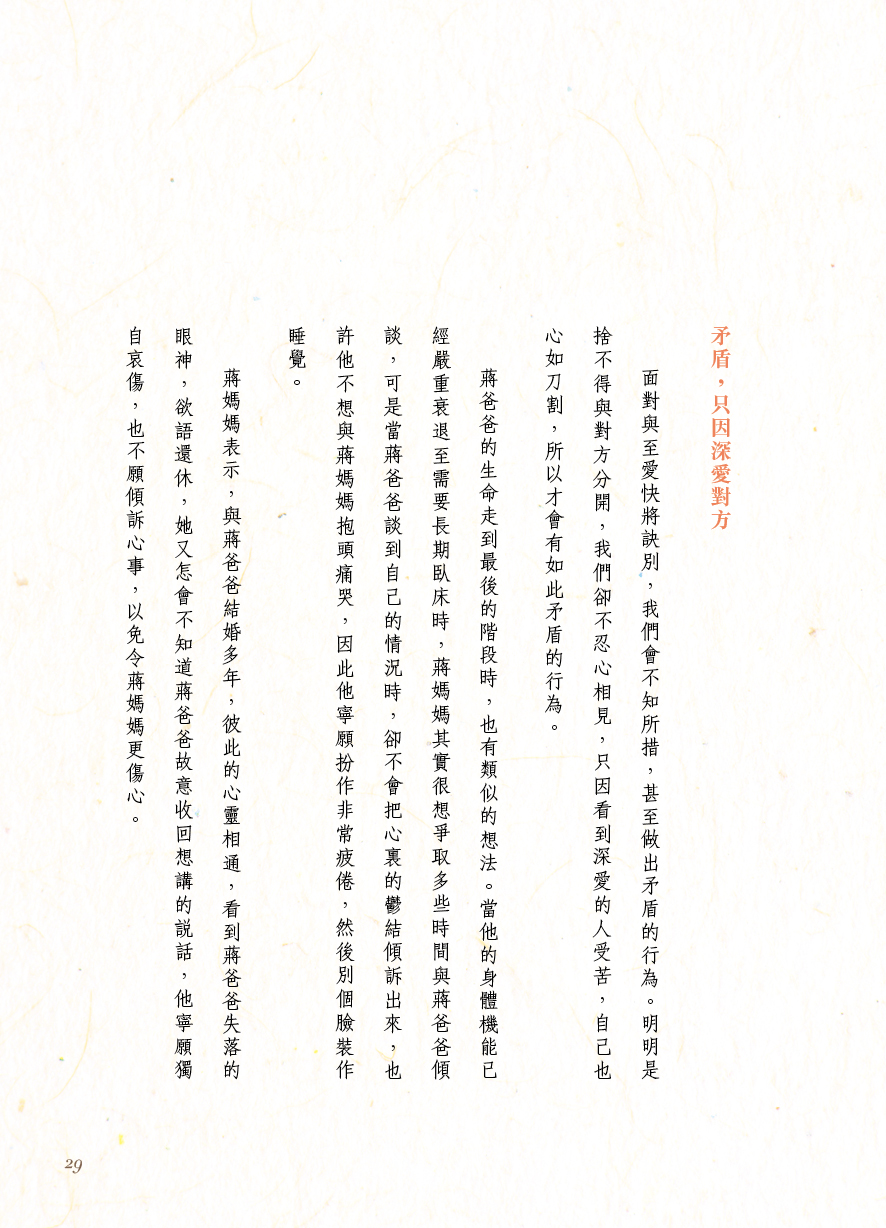 矛盾，只因深愛對方
面對與至愛快將訣別，我們會不知所措，甚至做出矛盾的行為。明明是
捨不得與對方分開，我們卻不忍心相見，只因看到深愛的人受苦，自己也
心如刀割，所以才會有如此矛盾的行為。
蔣爸爸的生命走到最後的階段時，也有類似的想法。當他的身體機能已
經嚴重衰退至需要長期臥床時，蔣媽媽其實很想爭取多些時間與蔣爸爸傾
談，可是當蔣爸爸談到自己的情況時，卻不會把心裏的鬱結傾訴出來，也
許他不想與蔣媽媽抱頭痛哭，因此他寧願扮作非常疲倦，然後別個臉裝作
睡覺。
蔣媽媽表示，與蔣爸爸結婚多年，彼此的心靈相通，看到蔣爸爸失落的
眼神，欲語還休，她又怎會不知道蔣爸爸故意收回想講的說話，他寧願獨
自哀傷，也不願傾訴心事，以免令蔣媽媽更傷心。
29